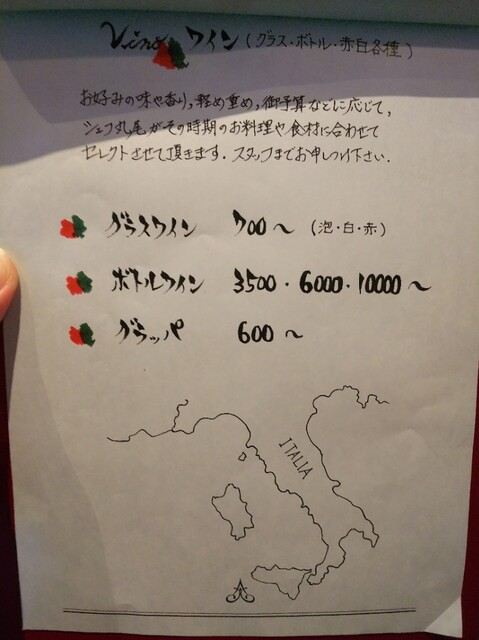 Vino ワイン (グラス・ボトル・赤白各種)
お好みの味や香り,軽め重め,御予算などに応じて,
シェフ丸尾がその時期のお料理や食材に合わせて
セレクトさせて頂きます.スタッフまでお申しつけ下さい.
グラスワイン 700～ (泡・白・赤)
ボトルワイン 3500・6000・10000～
グラッパ 600～
ITALIA